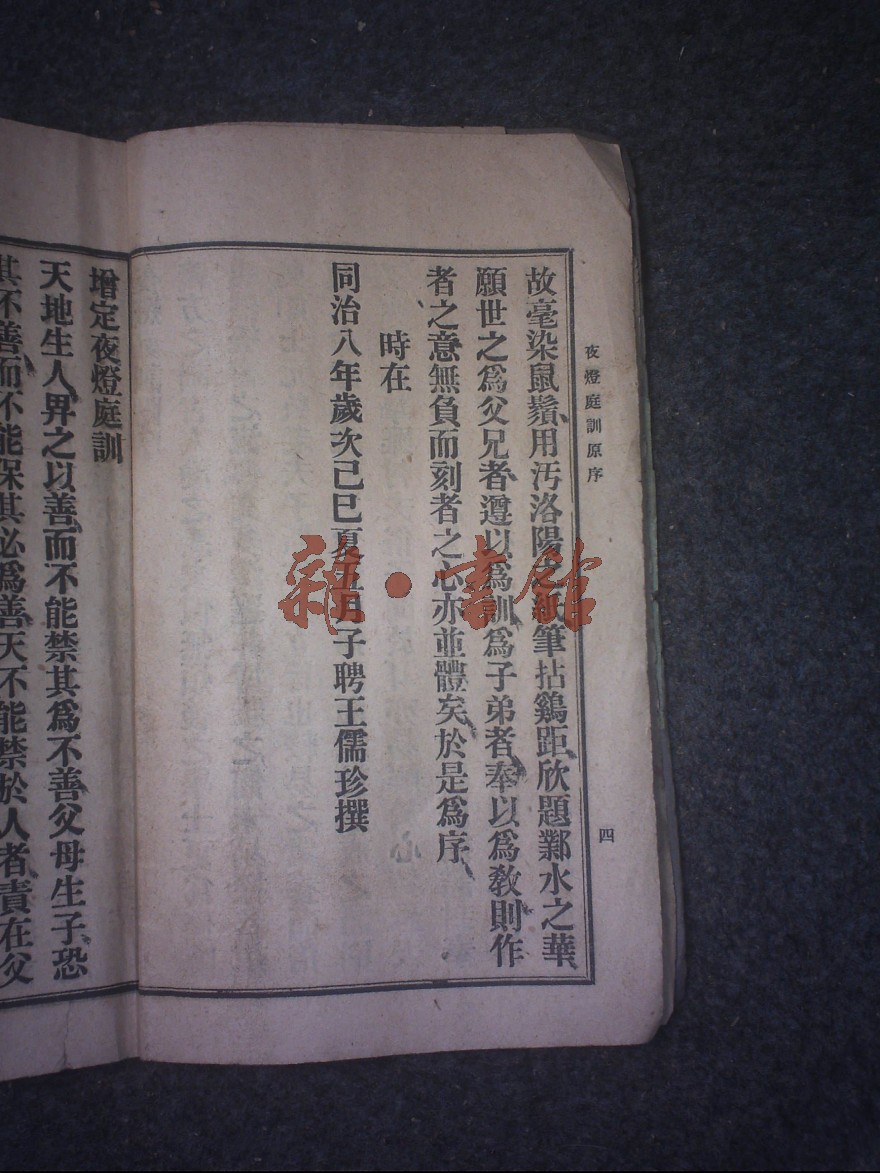 夜燈庭訓原序
四
故毫染鼠鬚、用汚洛陽之紙筆拈鷄距、欣題鄴水之華、
願世之爲父兄者、遵以爲訓、爲子弟者、奉以爲教、則作
者之意無負、而刻者之心亦並體矣、於是爲序、
時在
同治八年歲次己巳夏五月子聘王儒珍撰
增定夜燈庭訓
天地生人、畀之以善、而不能禁其爲不善、父母生子、恐
其不善、而不能保其必爲善、天不能禁於人者、責在父
雜·書館